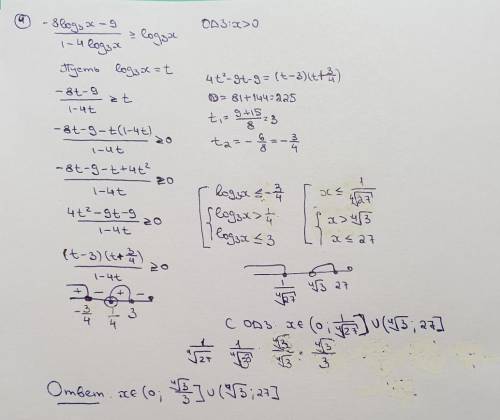 ④ -8log₃x - 9 / 1-4log₃x ≥ log₃x ОДЗ: x>0
Пусть log₃x = t
-8t-9 / 1-4t ≥ t
-8t-9-t(1-4t) / 1-4t ≥0
-8t-9-t+4t² / 1-4t ≥0
4t²-9t-9 / 1-4t ≥0
(t-3)(t+3/4) / 1-4t ≥0
+ - + -
-3/4 1/4 3
4t²-9t-9 = (t-3)(t+3/4)
D = 81+144=225
t₁ = 9+15 / 8 = 3
t₂ = -6/8 = -3/4
[ log₃x ≤ -3/4
{ log₃x > 1/4
log₃x ≤ 3
[ x ≤ 1/⁴√27
{ x > ⁴√3
x ≤ 27
1/⁴√27 ⁴√3 27
С ОДЗ x∈ (0; 1/⁴√27] ∪ (⁴√3; 27]
1/⁴√27 1/⁴√3³ · ⁴√3/⁴√3 = ⁴√3/3
Ответ. x∈ (0; ⁴√3/3] ∪ (⁴√3; 27]